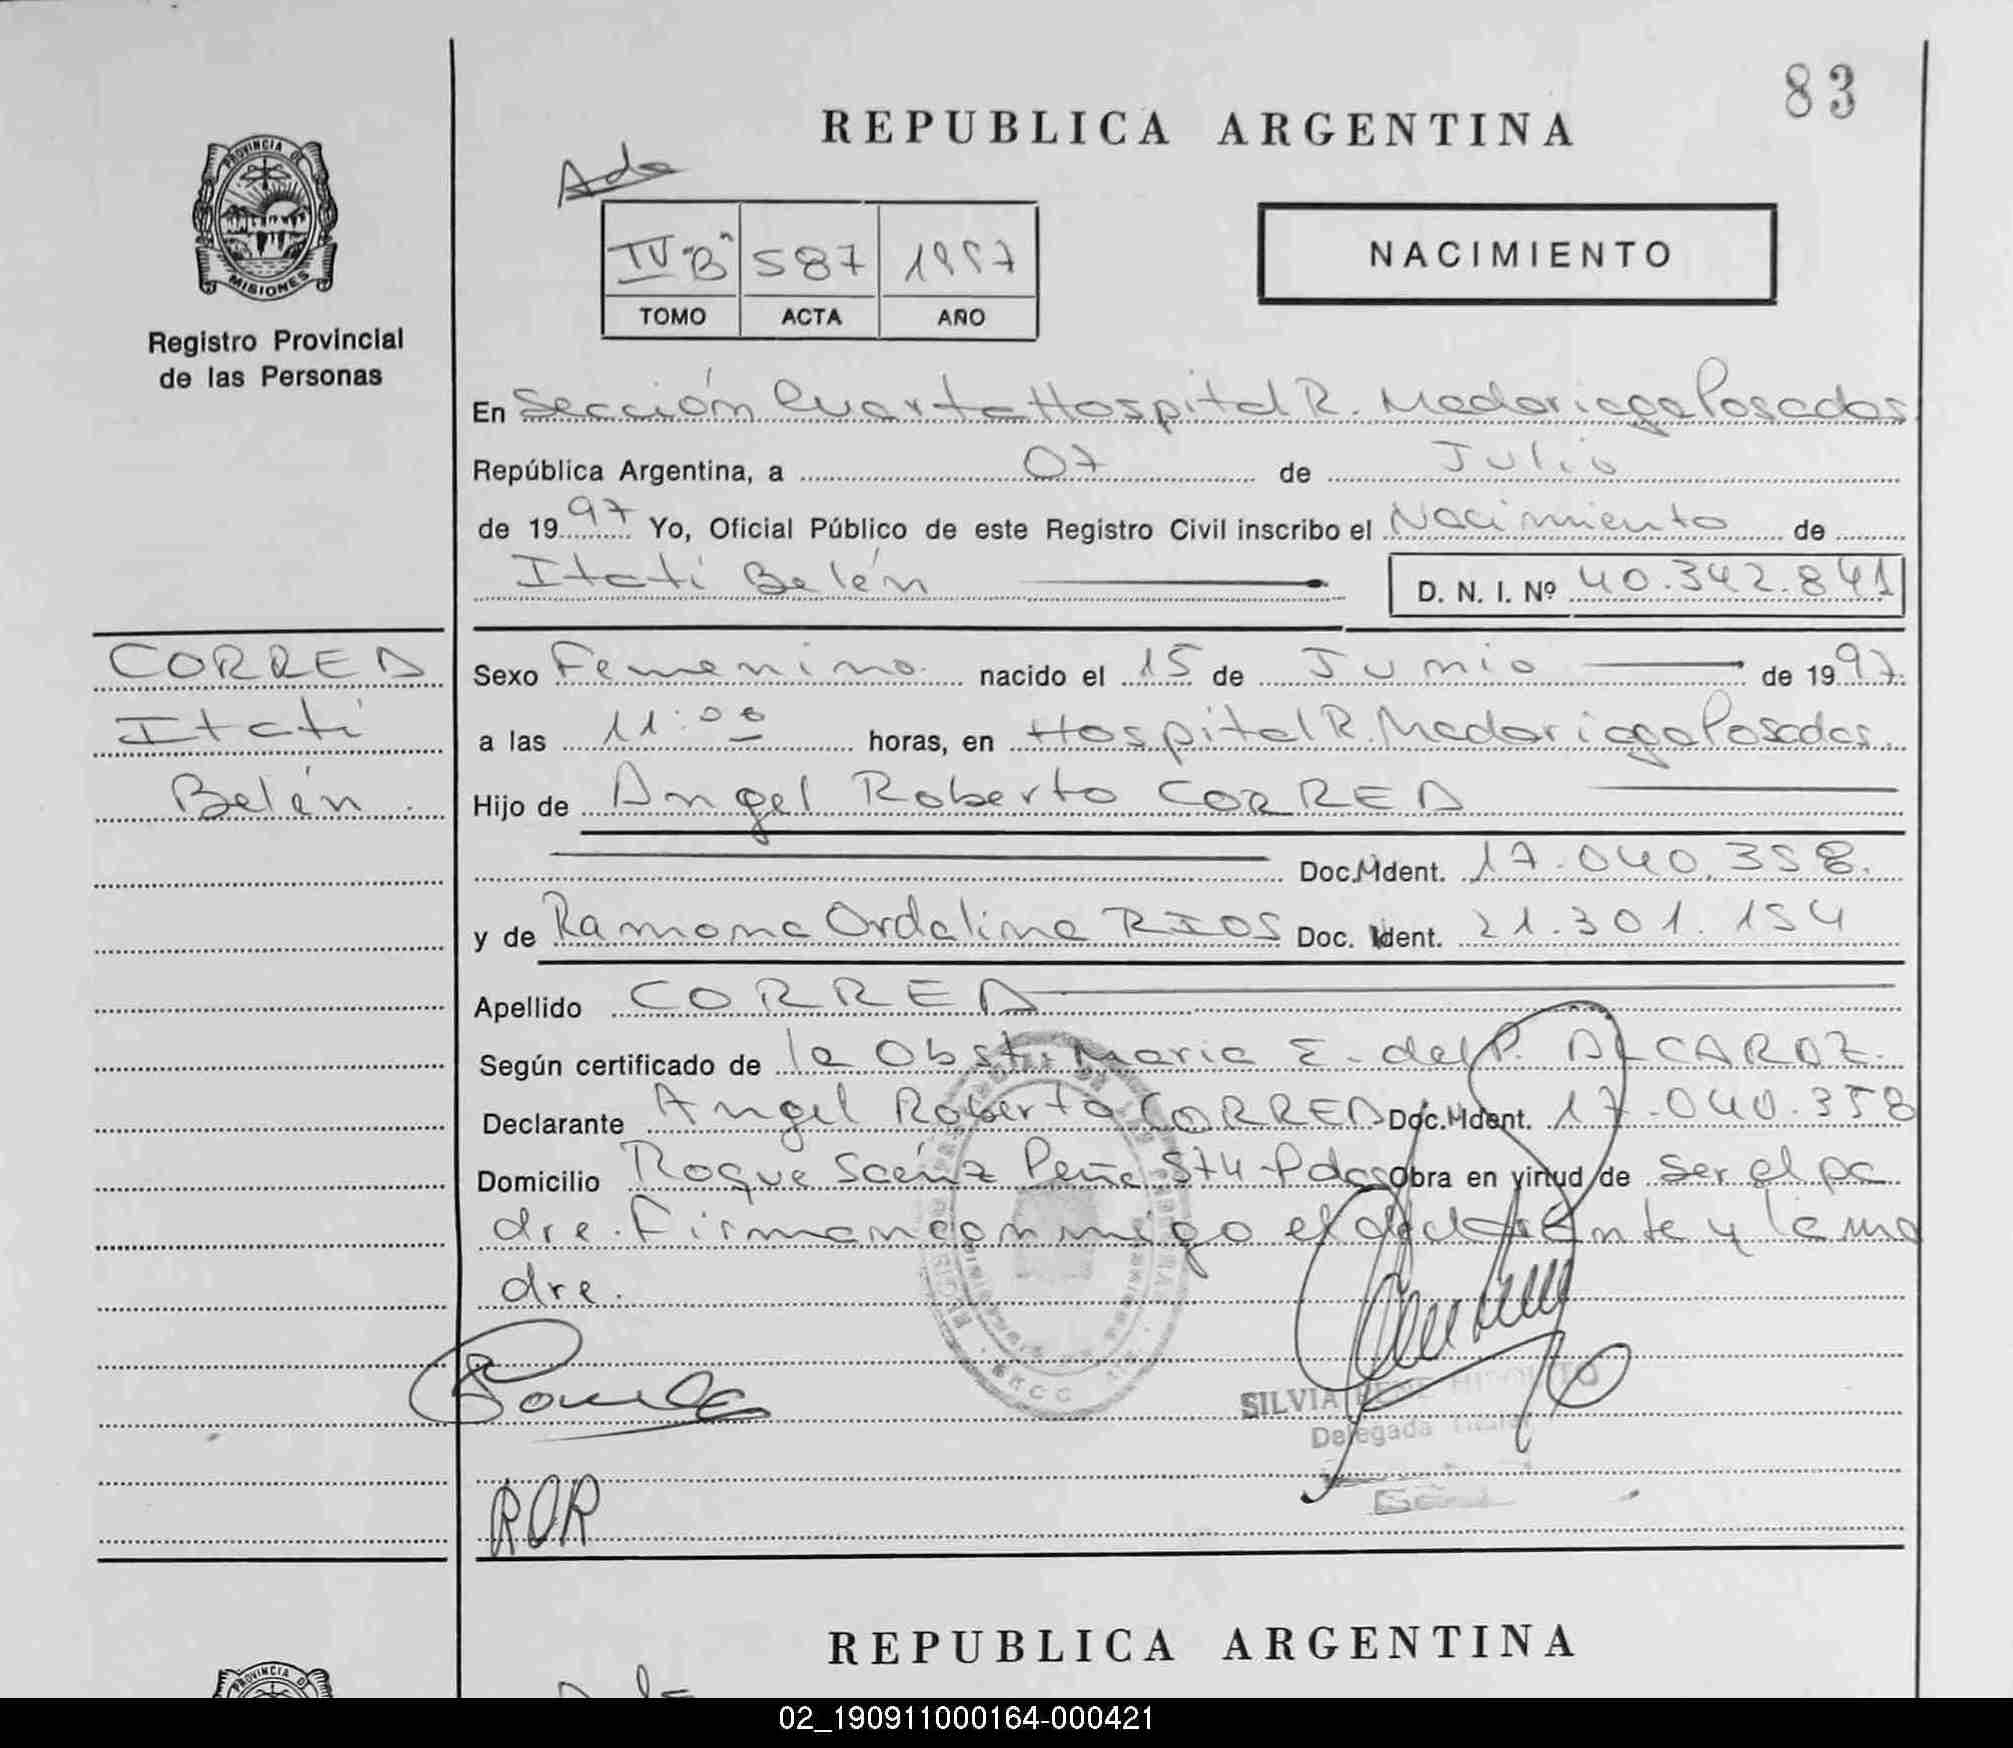 83
REPUBLICA ARGENTINA
PROVINCIA DE
MISIONES
Registro Provincial
de las Personas
IV "B" 587 1997
TOMO ACTA AÑO
NACIMIENTO
En Sección Cuarta Hospital R. Madariaga Posadas
República Argentina, a 07 de Julio
de 1997 Yo, Oficial Público de este Registro Civil inscribo el Nacimiento de
Itatí Belén D. N. I. Nº 40.342.841
CORREA
Itatí
Belén.
Sexo Femenino. nacido el 15 de Junio de 1997.
a las 11:00 horas, en Hospital R. Madariaga Posadas.
Hijo de Angel Roberto CORREA
Doc. Ident. 17.040.358.
y de Ramona Ordalina RIOS Doc. Ident. 21.301.154
Apellido CORREA
Según certificado de la Obst. Maria E. del P. ALCARAZ.
Declarante Angel Roberto CORREA Doc. Ident. 17.040.358
Domicilio Roque Saénz Peña 574 - Pdas Obra en virtud de ser el pa
dre. Firman conmigo el declarante y la ma
dre.
SILVIA
Delegada
ROR
REPUBLICA ARGENTINA
PROVINCIA D
02_190911000164-000421